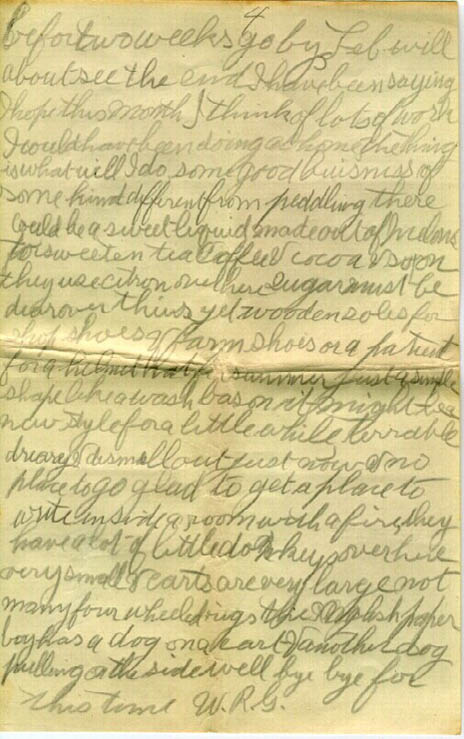 4
before two weeks go by Feb will
about see the end I have been saying
I hope this month I think of lots of work
I would have been doing at home the thing
is what will I do, some good buisness of
some kind different from peddling there
could be a sweet liquid made out of melons
to sweeten tea coffee & cocoa & so on
they use citron over here sugar must be
dear over there yet wooden soles for
shop shoes & farm shoes or a patent
for a helmet hat for summer just a simple
shape like a wash bason it might be a
new style for a little while terrable
dreary & dismall out just now & no
place to go glad to get a place to
write inside a room with a fire, they
have a lot of little donkeys over here
very small & carts are very large not
many four wheeled rigs the paper
boy has a dog on a cart & another dog
pulling at the side well bye bye for
this time W.R.G.